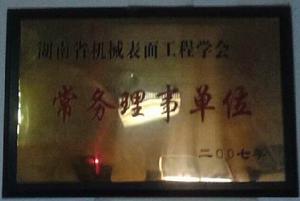 湖南省机械表面工程学会
常务理事单位
二00七年